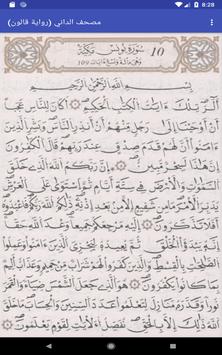 8:28
مصحف الداني (رواية قالون)
10 سورة يونس مكية
وهي مائة وتسع آيات 109
بسم الله الرحمن الرحيم
ألر تلك ءايت الكتب الحكيم أكان للناس عجبا
أن أوحينا إلى رجل منهم أن أنذر الناس وبشر الذين
ءامنوا أن لهم قدم صدق عند ربهم قال الكفرون إن هذا
لسحر مبين إن ربكم الله الذي خلق السموت والأرض
في ستة أيام ثم استوى على العرش يدبر الأمر
ما من شفيع إلا من بعد إذنه ذلكم الله ربكم فاعبدوه
أفلا تذكرون إليه مرجعكم جميعا وعد الله حقا إنه
يبدؤا الخلق ثم يعيده ليجزي الذين ءامنوا وعملوا
الصلحت بالقسط والذين كفروا لهم شراب من حميم وعذاب
أليم بما كانوا يكفرون هو الذي جعل الشمس ضياء
والقمر نورا وقدره منازل لتعلموا عدد السنين والحساب ما خلق
الله ذلك إلا بالحق نفصل الأيت لقوم يعلمون